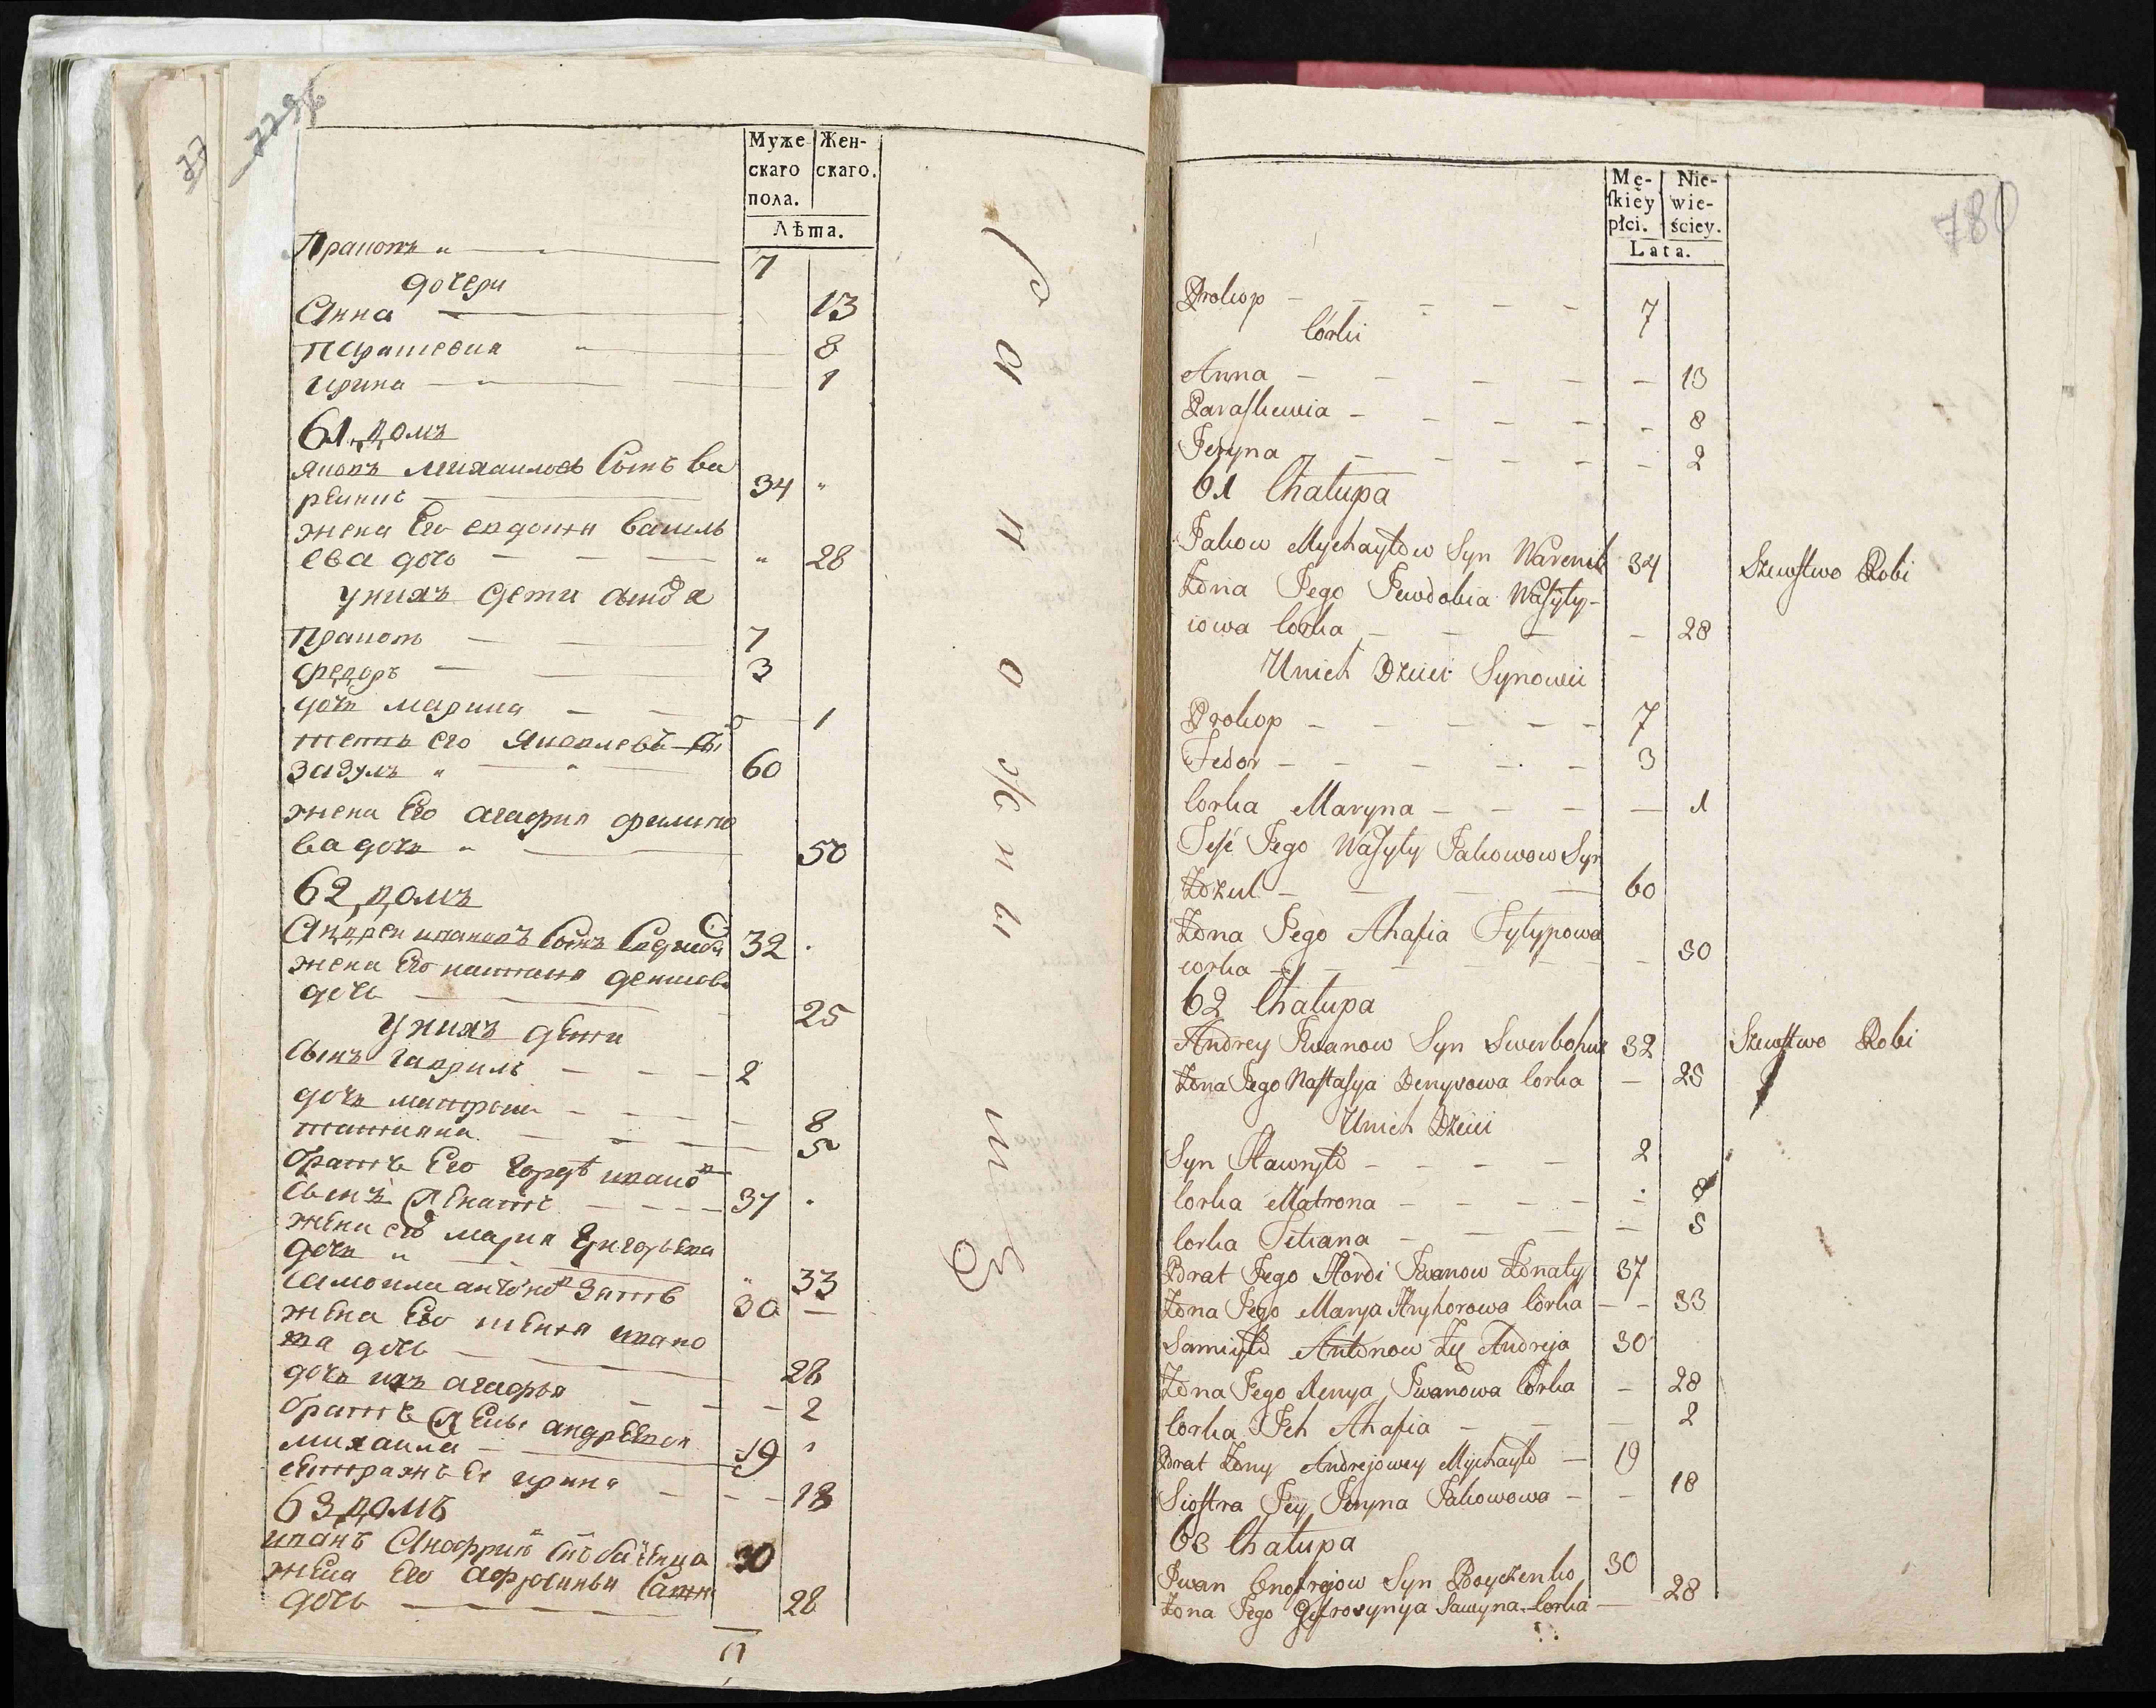 77
Муже- Жен-
скаго скаго.
пола.
Лѣта.
Пракопъ 7
дочери
Анна 13
Парашевия 8
ирина 1
61 домъ
яковъ михаиловъ сынъ ва
реникъ 34
жена Его евдокия василь
ева дочь 28
у них дети
Пракопъ 7
федоръ 3
дочь марина 1
тесть его Яковлевъ
зазуль 60
жена Его агафия филипо
ва дочь 50
62 домъ
Андреи ивановъ сынъ 32
жена Его настасия денисова
дочь 25
у нихъ дети
сынъ гаврилъ 2
дочь матрона 8
татияна 5
братъ Его гордѣ ивано
сынъ женатъ 37
жена его мария григорьева
дочь 33
самоила антоно зять 30
жена Его ксения ивано
ва дочь 28
дочь ихъ агафья 2
братъ жены андреевои
михаила 19
сестра ж Ее ирина 18
63 домъ
иванъ Анофриевъ сынъ боиченко 30
жена Его афросинья савина
дочь 28
780
Mę- Nie-
ſkiey wie-
płci. ściey.
Lata.
Prokop 7
Córki
Anna 13
Paraskewia 8
Jeryna 2
61 Chałupa
Jakow Mychayłow Syn Warenik 34 Szewstwo Robi
Żona Jego Jewdokia Wasyły-
iowa Corka 28
Unich Dzieci Synowii
Prokop 7
Fedor 3
Corka Maryna 1
Teść Jego Wasyły Jakowow Syn
Zozul 60
Żona Jego Ahafia Fyłypowa
corka 50
62 Chałupa
Andrey Jwanow Syn Swerbohuz 32 Szewstwo Robi
Żona Jego Nastasya Denysowa Corka 25
Unich Dzieci
Syn Hawryło 2
Corka Matrona 8
Corka Tetiana 5
Brat Jego Hordi Jwanow Żonaty 37
Żona Jego Marya Hryhorowa Córka 33
Samiyło Antonow Zęć Andreja 30
Żona Jego Xenya Jwanowa Córka 28
Corka Jch Ahafia 2
Brat Żony Andrejowey Mychayło 19
Siostra Jey Jeryna Jakowowa 18
63 Chałupa
Jwan Onofrejow Syn Boyczenko 30
Żona Jego Jefrosynya Sawyna Corka 28